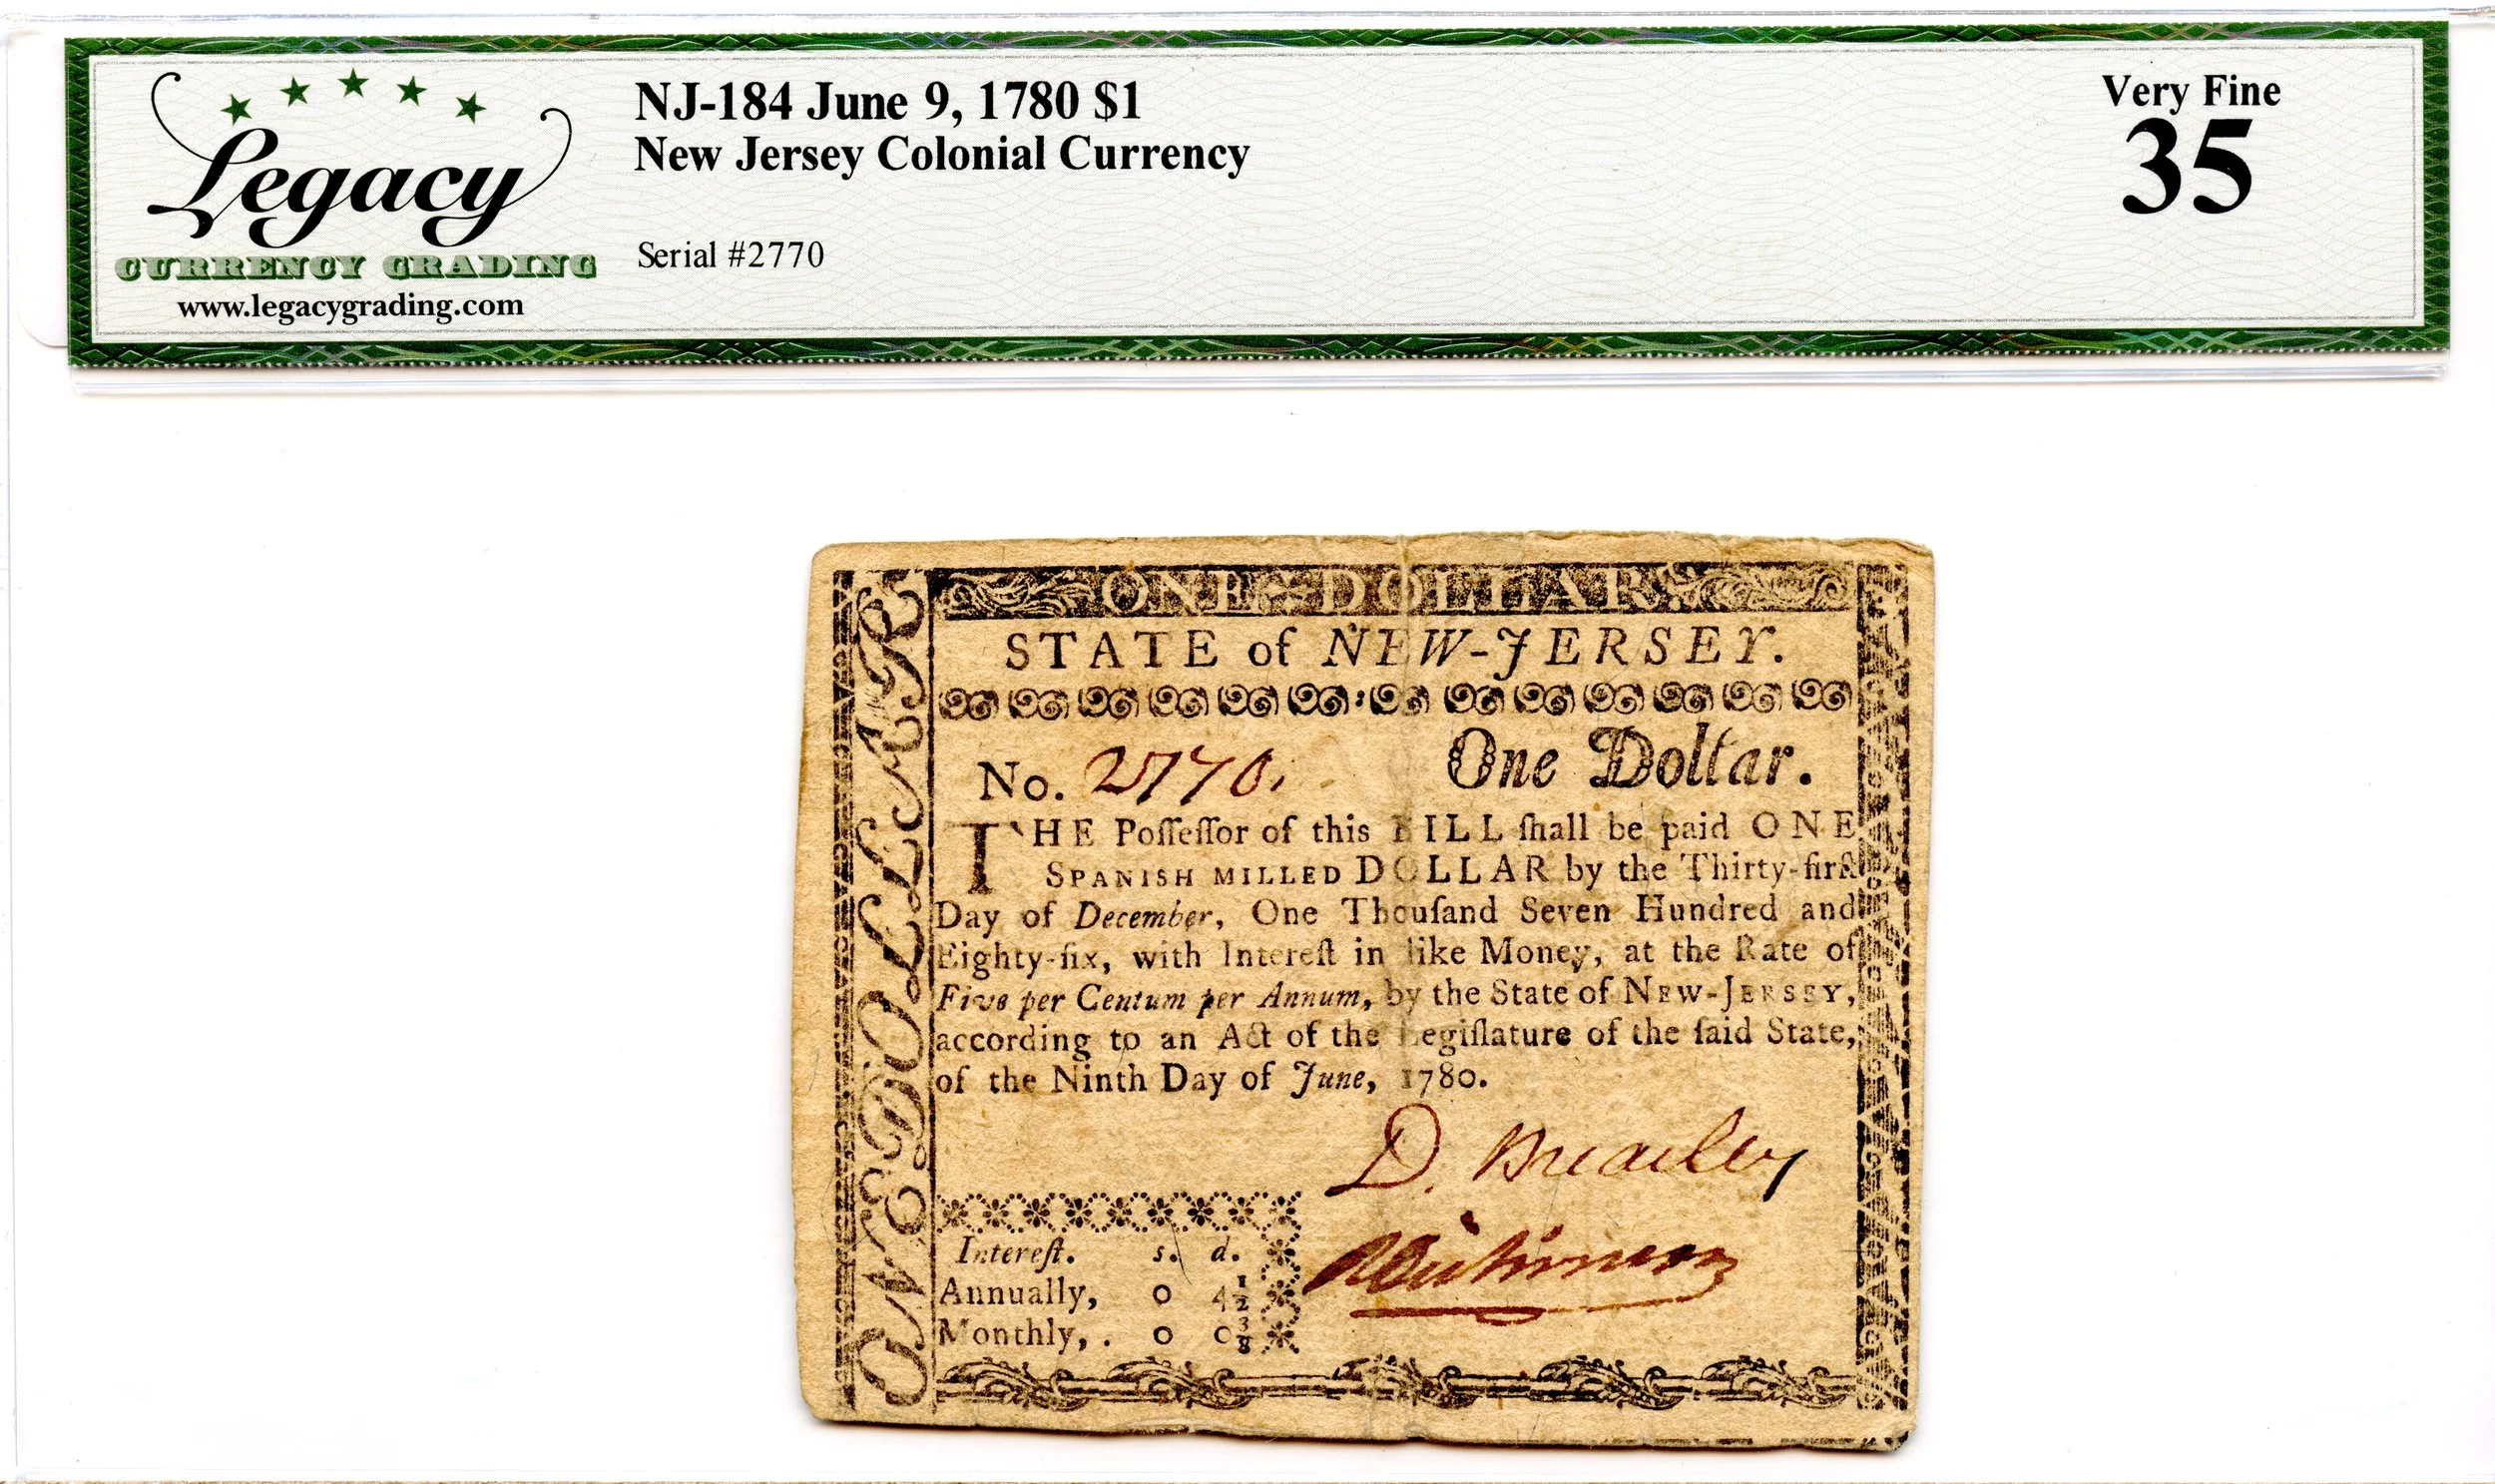 Legacy
CURRENCY GRADING
www.legacygrading.com
NJ-184 June 9, 1780 $1
New Jersey Colonial Currency
Serial #2770
Very Fine
35
ONE DOLLAR
ONE DOLLAR
STATE of NEW-JERSEY.
No. 2770. One Dollar.
THE Poſſeſſor of this BILL ſhall be paid ONE
SPANISH MILLED DOLLAR by the Thirty-firſt
Day of December, One Thouſand Seven Hundred and
Eighty-ſix, with Intereſt in like Money, at the Rate of
Five per Centum per Annum, by the State of NEW-JERSEY,
according to an Act of the Legiſlature of the ſaid State,
of the Ninth Day of June, 1780.
D. Brearley
Intereſt. s. d.
Annually, 0 4½
Monthly, . 0 0⅜